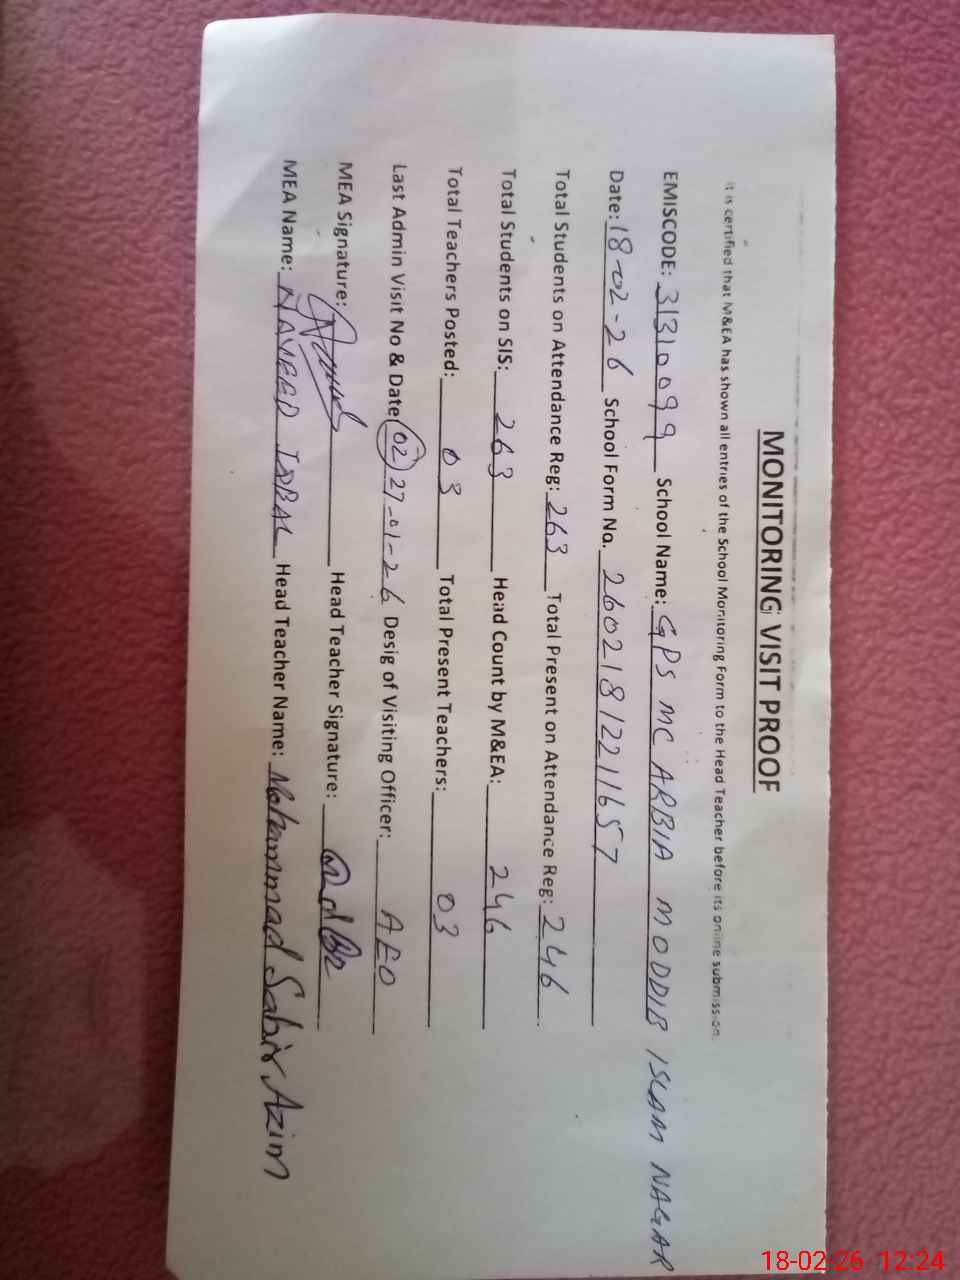 MONITORING VISIT PROOF
It is certified that M&EA has shown all entries of the School Monitoring Form to the Head Teacher before its online submission.
EMISCODE: 31310099 School Name: GPS MC ARBIA MODDIB ISLAM NAGAR
Date: 18-02-26 School Form No. 26021812211657
Total Students on Attendance Reg: 263 Total Present on Attendance Reg: 246
Total Students on SIS: 263 Head Count by M&EA: 246
Total Teachers Posted: 03 Total Present Teachers: 03
Last Admin Visit No & Date 02 27-01-26 Desig of Visiting Officer: AEO
MEA Signature: Head Teacher Signature:
MEA Name: NAVEED IQBAL Head Teacher Name: Mohammad Sabir Azim
18-02-26 12:24